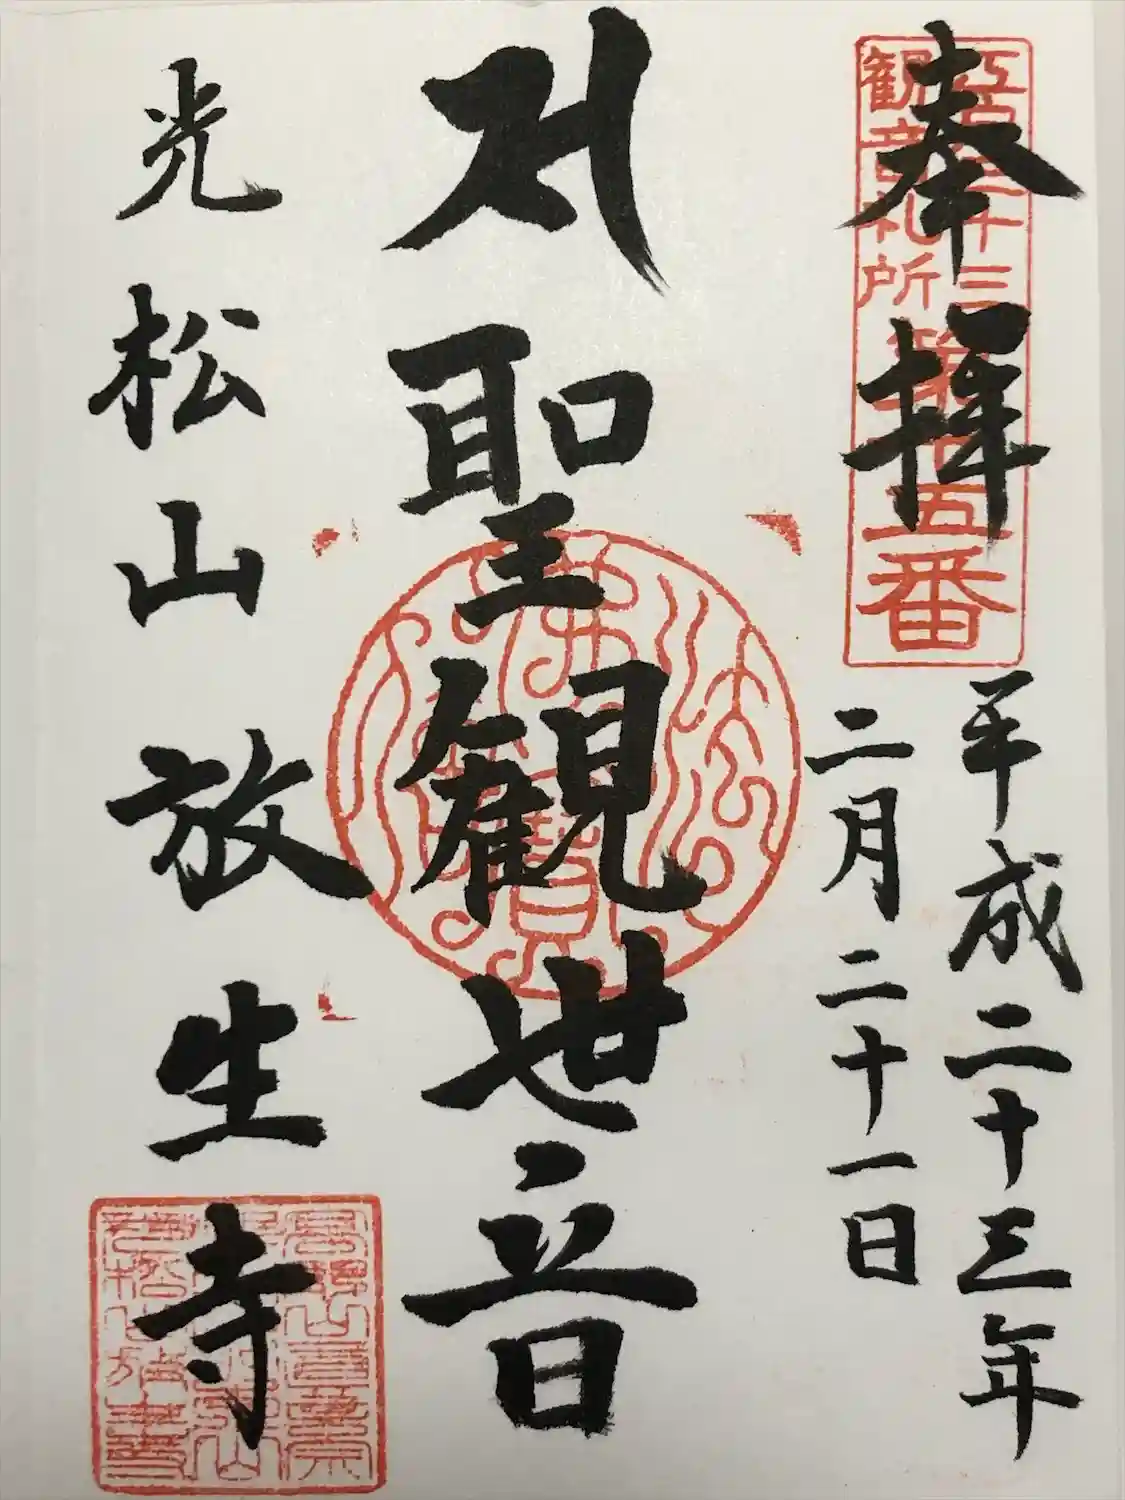 奉拝
江戸三十三
観音札所
第十五番
平成二十三年
二月二十一日
聖観世音
光松山放生寺